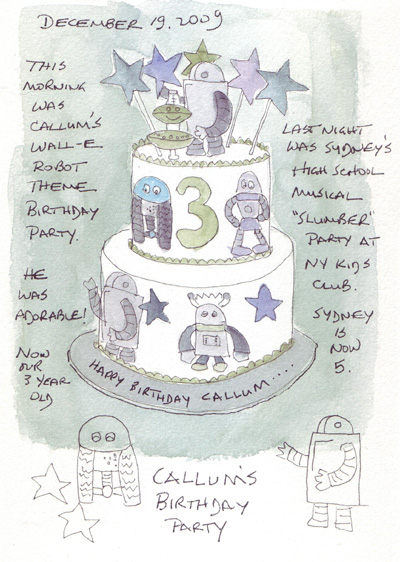 DECEMBER 19, 2009
THIS
MORNING
WAS
CALLUM'S
WALL-E
ROBOT
THEME
BIRTHDAY
PARTY.
HE
WAS
ADORABLE!
NOW
OUR
3 YEAR
OLD
LAST NIGHT
WAS SYDNEY'S
HIGH SCHOOL
MUSICAL
"SLUMBER"
PARTY AT
NY KIDS
CLUB.
SYDNEY
IS
NOW
5.
3
HAPPY BIRTHDAY CALLUM....
CALLUM'S
BIRTHDAY
PARTY